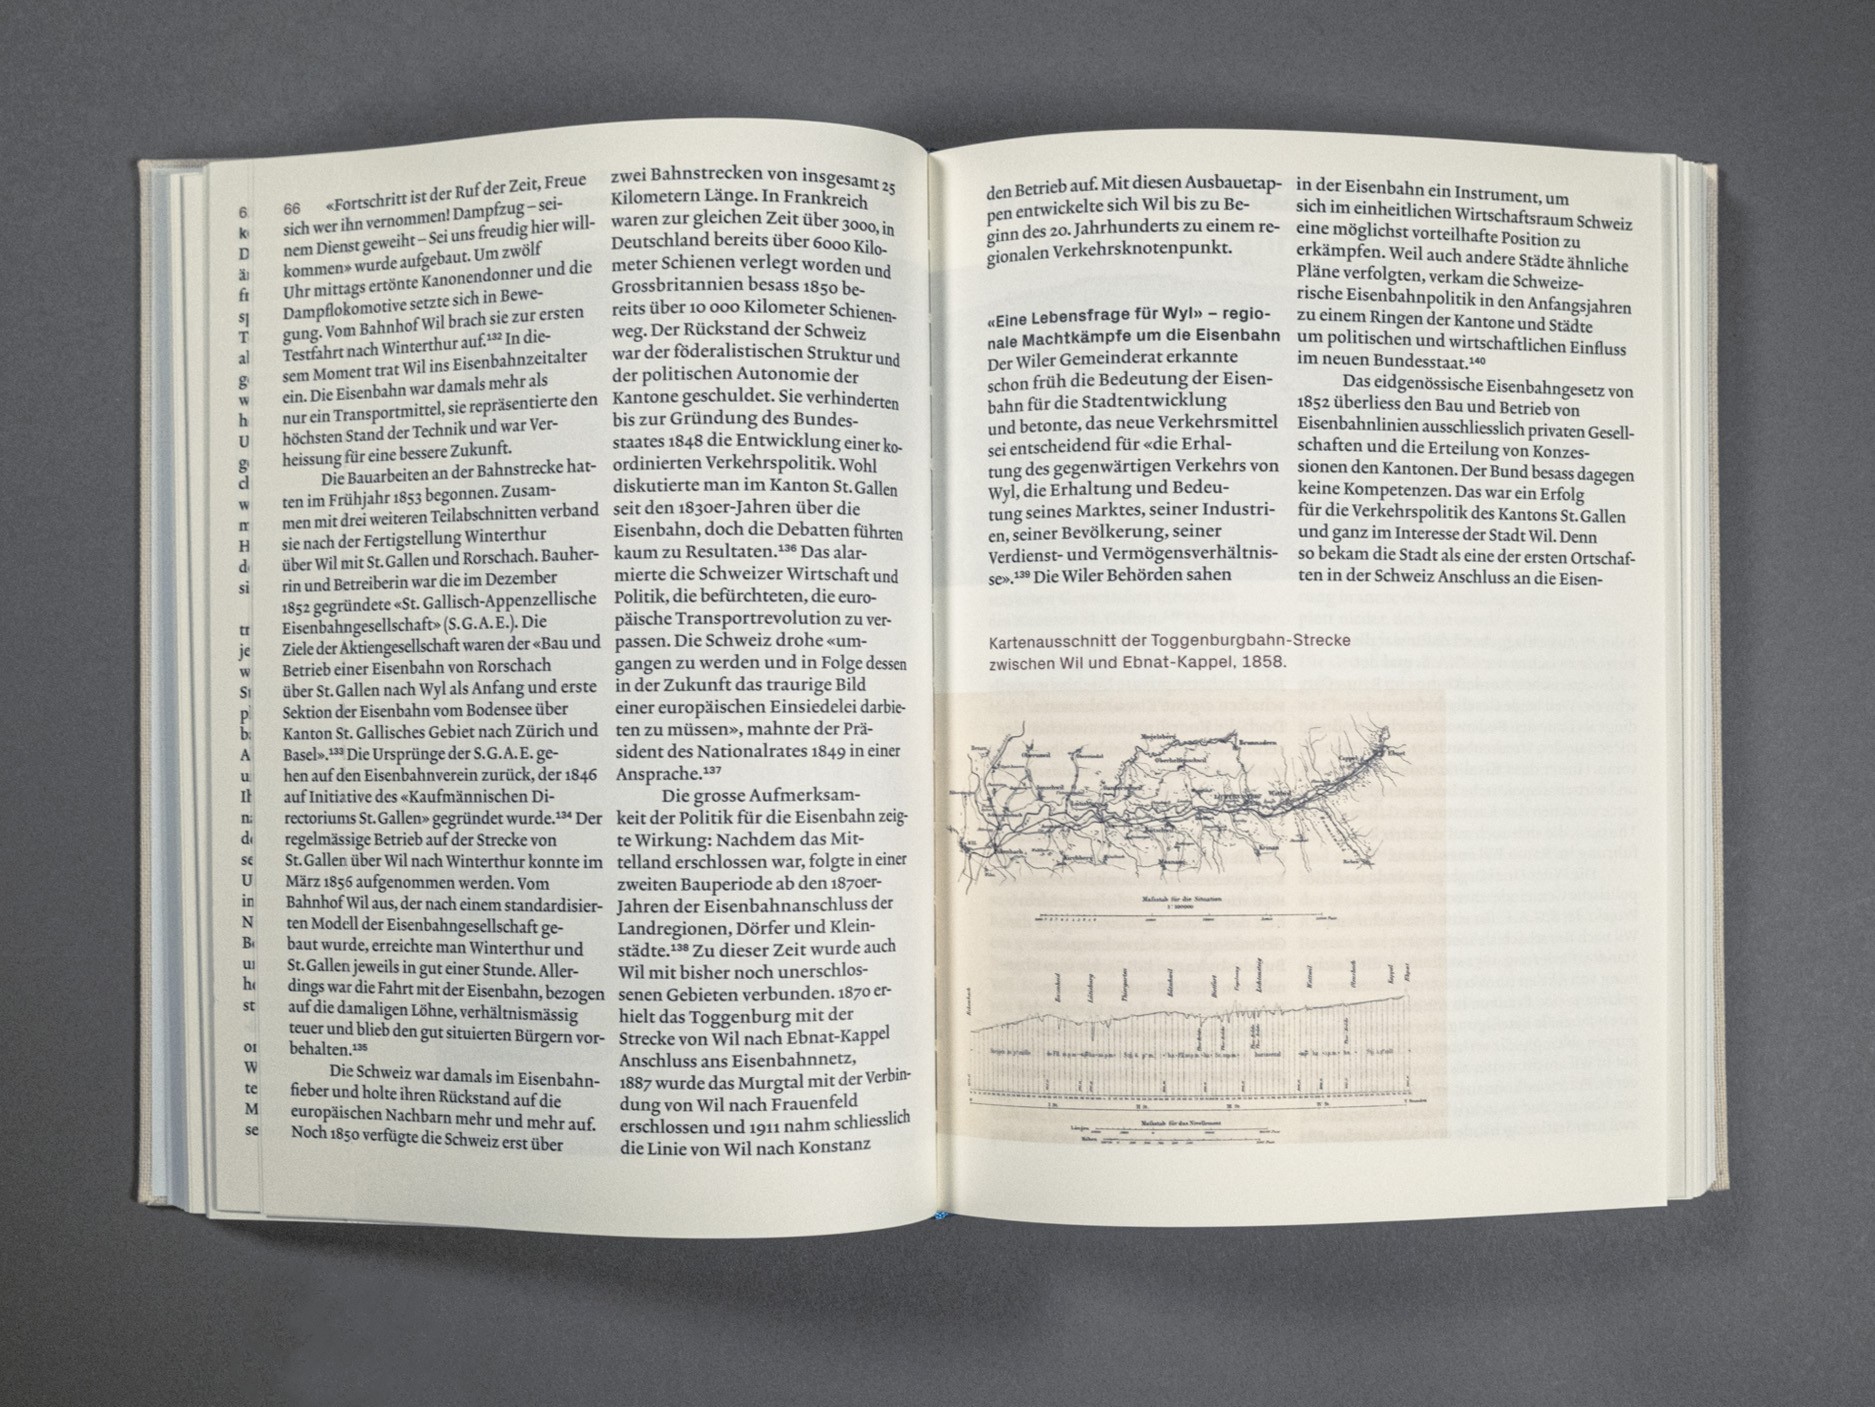 66 «Fortschritt ist der Ruf der Zeit, Freue
sich wer ihn vernommen! Dampfzug – sei-
nem Dienst geweiht – Sei uns freudig hier will-
kommen» wurde aufgebaut. Um zwölf
Uhr mittags ertönte Kanonendonner und die
Dampflokomotive setzte sich in Bewe-
gung. Vom Bahnhof Wil brach sie zur ersten
Testfahrt nach Winterthur auf.¹³² In die-
sem Moment trat Wil ins Eisenbahnzeitalter
ein. Die Eisenbahn war damals mehr als
nur ein Transportmittel, sie repräsentierte den
höchsten Stand der Technik und war Ver-
heissung für eine bessere Zukunft.
Die Bauarbeiten an der Bahnstrecke hat-
ten im Frühjahr 1853 begonnen. Zusam-
men mit drei weiteren Teilabschnitten verband
sie nach der Fertigstellung Winterthur
über Wil mit St. Gallen und Rorschach. Bauher-
rin und Betreiberin war die im Dezember
1852 gegründete «St. Gallisch-Appenzellische
Eisenbahngesellschaft» (S.G.A.E.). Die
Ziele der Aktiengesellschaft waren der «Bau und
Betrieb einer Eisenbahn von Rorschach
über St. Gallen nach Wyl als Anfang und erste
Sektion der Eisenbahn vom Bodensee über
Kanton St. Gallisches Gebiet nach Zürich und
Basel».¹³³ Die Ursprünge der S.G.A.E. ge-
hen auf den Eisenbahnverein zurück, der 1846
auf Initiative des «Kaufmännischen Di-
rectoriums St. Gallen» gegründet wurde.¹³⁴ Der
regelmässige Betrieb auf der Strecke von
St. Gallen über Wil nach Winterthur konnte im
März 1856 aufgenommen werden. Vom
Bahnhof Wil aus, der nach einem standardisier-
ten Modell der Eisenbahngesellschaft ge-
baut wurde, erreichte man Winterthur und
St. Gallen jeweils in gut einer Stunde. Aller-
dings war die Fahrt mit der Eisenbahn, bezogen
auf die damaligen Löhne, verhältnismässig
teuer und blieb den gut situierten Bürgern vor-
behalten.¹³⁵
Die Schweiz war damals im Eisenbahn-
fieber und holte ihren Rückstand auf die
europäischen Nachbarn mehr und mehr auf.
Noch 1850 verfügte die Schweiz erst über
zwei Bahnstrecken von insgesamt 25
Kilometern Länge. In Frankreich
waren zur gleichen Zeit über 3000, in
Deutschland bereits über 6000 Kilo-
meter Schienen verlegt worden und
Grossbritannien besass 1850 be-
reits über 10 000 Kilometer Schienen-
weg. Der Rückstand der Schweiz
war der föderalistischen Struktur und
der politischen Autonomie der
Kantone geschuldet. Sie verhinderten
bis zur Gründung des Bundes-
staates 1848 die Entwicklung einer ko-
ordinierten Verkehrspolitik. Wohl
diskutierte man im Kanton St. Gallen
seit den 1830er-Jahren über die
Eisenbahn, doch die Debatten führten
kaum zu Resultaten.¹³⁶ Das alar-
mierte die Schweizer Wirtschaft und
Politik, die befürchteten, die euro-
päische Transportrevolution zu ver-
passen. Die Schweiz drohe «um-
gangen zu werden und in Folge dessen
in der Zukunft das traurige Bild
einer europäischen Einsiedelei darbie-
ten zu müssen», mahnte der Prä-
sident des Nationalrates 1849 in einer
Ansprache.¹³⁷
Die grosse Aufmerksam-
keit der Politik für die Eisenbahn zeig-
te Wirkung: Nachdem das Mit-
telland erschlossen war, folgte in einer
zweiten Bauperiode ab den 1870er-
Jahren der Eisenbahnanschluss der
Landregionen, Dörfer und Klein-
städte.¹³⁸ Zu dieser Zeit wurde auch
Wil mit bisher noch unerschlos-
senen Gebieten verbunden. 1870 er-
hielt das Toggenburg mit der
Strecke von Wil nach Ebnat-Kappel
Anschluss ans Eisenbahnnetz,
1887 wurde das Murgtal mit der Verbin-
dung von Wil nach Frauenfeld
erschlossen und 1911 nahm schliesslich
die Linie von Wil nach Konstanz
den Betrieb auf. Mit diesen Ausbauetap-
pen entwickelte sich Wil bis zu Be-
ginn des 20. Jahrhunderts zu einem re-
gionalen Verkehrsknotenpunkt.
«Eine Lebensfrage für Wyl» – regio-
nale Machtkämpfe um die Eisenbahn
Der Wiler Gemeinderat erkannte
schon früh die Bedeutung der Eisen-
bahn für die Stadtentwicklung
und betonte, das neue Verkehrsmittel
sei entscheidend für «die Erhal-
tung des gegenwärtigen Verkehrs von
Wyl, die Erhaltung und Bedeu-
tung seines Marktes, seiner Industri-
en, seiner Bevölkerung, seiner
Verdienst- und Vermögensverhältnis-
se».¹³⁹ Die Wiler Behörden sahen
in der Eisenbahn ein Instrument, um
sich im einheitlichen Wirtschaftsraum Schweiz
eine möglichst vorteilhafte Position zu
erkämpfen. Weil auch andere Städte ähnliche
Pläne verfolgten, verkam die Schweize-
rische Eisenbahnpolitik in den Anfangsjahren
zu einem Ringen der Kantone und Städte
um politischen und wirtschaftlichen Einfluss
im neuen Bundesstaat.¹⁴⁰
Das eidgenössische Eisenbahngesetz von
1852 überliess den Bau und Betrieb von
Eisenbahnlinien ausschliesslich privaten Gesell-
schaften und die Erteilung von Konzes-
sionen den Kantonen. Der Bund besass dagegen
keine Kompetenzen. Das war ein Erfolg
für die Verkehrspolitik des Kantons St. Gallen
und ganz im Interesse der Stadt Wil. Denn
so bekam die Stadt als eine der ersten Ortschaf-
ten in der Schweiz Anschluss an die Eisen-
Kartenausschnitt der Toggenburgbahn-Strecke
zwischen Wil und Ebnat-Kappel, 1858.
Maßstab für die Situation
Maßstab für das Nivellement